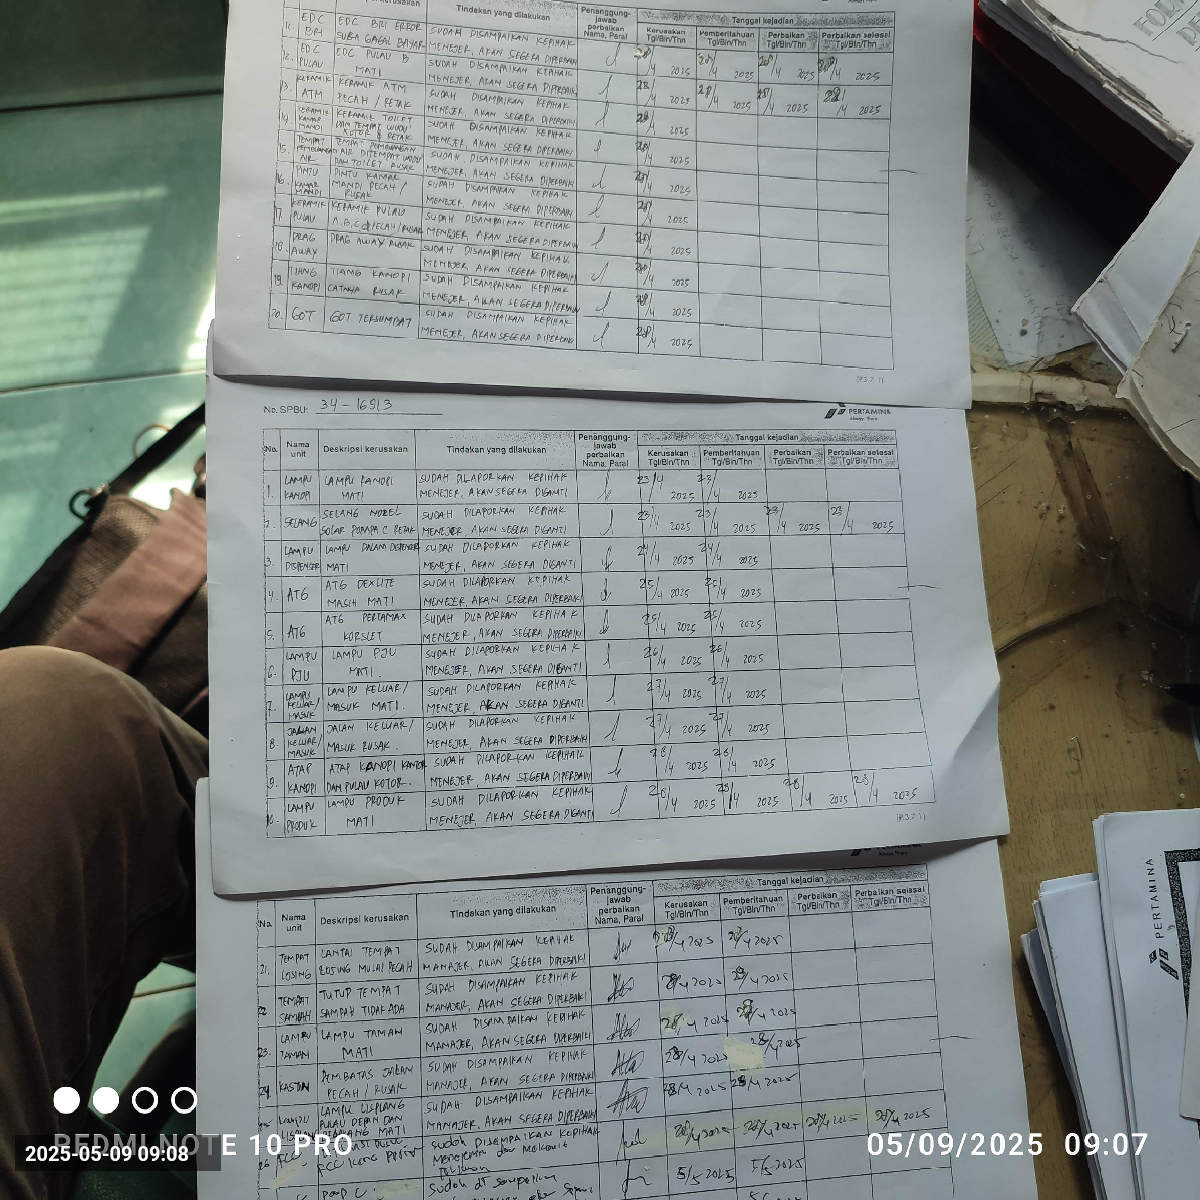 Tindakan yang dilakukan
Penanggung-
jawab
perbaikan
Nama, Paraf
Tanggal kejadian
Kerusakan
Tgl/Bln/Thn
Pemberitahuan
Tgl/Bln/Thn
Perbaikan
Tgl/Bln/Thn
Perbaikan selesai
Tgl/Bln/Thn
11. EDC BRI
EDC BRI ERROR
SUDAH DISAMPAIKAN KEPIHAK
MENEJER, AKAN SEGERA DIPERBAIKI
28/4 2025
12. EDC PULAU
EDC PULAU B
MATI
SUDAH DISAMPAIKAN KEPIHAK
MENEJER, AKAN SEGERA DIPERBAIKI
28/4 2025
13. KERAMIK ATM
KERAMIK ATM
PECAH / RETAK
SUDAH DISAMPAIKAN KEPIHAK
MENEJER, AKAN SEGERA DIPERBAIKI
14. KERAMIK KAMAR MANDI
KERAMIK TOILET
KOTOR & RETAK
SUDAH DISAMPAIKAN KEPIHAK
MENEJER, AKAN SEGERA DIPERBAIKI
15. TEMPAT
AIR
TEMPAT
DAN TOILET RUSAK
SUDAH DISAMPAIKAN KEPIHAK
MENEJER, AKAN SEGERA DIPERBAIKI
16. PINTU KAMAR MANDI
PINTU KAMAR
MANDI PECAH /
RUSAK
SUDAH DISAMPAIKAN KEPIHAK
MENEJER, AKAN SEGERA DIPERBAIKI
17. KERAMIK PULAU
KERAMIK PULAU
SUDAH DISAMPAIKAN KEPIHAK
MENEJER, AKAN SEGERA DIPERBAIKI
18. DRAG AWAY
DRAG AWAY RUSAK
SUDAH DISAMPAIKAN KEPIHAK
MENEJER, AKAN SEGERA DIPERBAIKI
19. TIANG KANOPI
TIANG KANOPI
RUSAK
SUDAH DISAMPAIKAN KEPIHAK
MENEJER, AKAN SEGERA DIPERBAIKI
20. GOT
GOT TERSUMBAT
SUDAH DISAMPAIKAN KEPIHAK
MENEJER, AKAN SEGERA DIPERBAIKI
28/4 2025
(P.3.7.1)
No. SPBU: 34-16513
PERTAMINA
No.
Nama unit
Deskripsi kerusakan
Tindakan yang dilakukan
Penanggung-
jawab
perbaikan
Nama, Paraf
Tanggal kejadian
Kerusakan
Tgl/Bln/Thn
Pemberitahuan
Tgl/Bln/Thn
Perbaikan
Tgl/Bln/Thn
Perbaikan selesai
Tgl/Bln/Thn
1. LAMPU KANOPI
LAMPU KANOPI
MATI
SUDAH DILAPORKAN KEPIHAK
MENEJER, AKAN SEGERA DIGANTI
23/4 2025 23/4 2025
2. SELANG
SELANG NOZEL
SOLAR POMPA C RETAK
SUDAH DILAPORKAN KEPIHAK
MENEJER, AKAN SEGERA DIGANTI
23/4 2025 23/4 2025 23/4 2025 23/4 2025
3. LAMPU DISPENSER
LAMPU DALAM DISPENSER
MATI
SUDAH DILAPORKAN KEPIHAK
MENEJER, AKAN SEGERA DIGANTI
24/4 2025 24/4 2025
4. ATG
ATG DEXLITE
MASIH MATI
SUDAH DILAPORKAN KEPIHAK
MENEJER, AKAN SEGERA DIPERBAIKI
25/4 2025 25/4 2025
5. ATG
ATG PERTAMAX
KORSLET
SUDAH DILAPORKAN KEPIHAK
MENEJER, AKAN SEGERA DIPERBAIKI
25/4 2025 25/4 2025
6. LAMPU PJU
LAMPU PJU
MATI.
SUDAH DILAPORKAN KEPIHAK
MENEJER, AKAN SEGERA DIGANTI
26/4 2025 26/4 2025
7. LAMPU KELUAR/ MASUK
LAMPU KELUAR/
MASUK MATI.
SUDAH DILAPORKAN KEPIHAK
MENEJER, AKAN SEGERA DIGANTI
27/4 2025 27/4 2025
8. JALAN KELUAR/ MASUK
JALAN KELUAR/
MASUK RUSAK.
SUDAH DILAPORKAN KEPIHAK
MENEJER, AKAN SEGERA DIPERBAIKI
27/4 2025 27/4 2025
9. ATAP KANOPI
ATAP KANOPI KANTOR
DAN PULAU KOTOR.
SUDAH DILAPORKAN KEPIHAK
MENEJER, AKAN SEGERA DIPERBAIKI
28/4 2025 28/4 2025
10. LAMPU PRODUK
LAMPU PRODUK
MATI
SUDAH DILAPORKAN KEPIHAK
MENEJER, AKAN SEGERA DIGANTI
28/4 2025 28/4 2025 28/4 2025 28/4 2025
(P.3.7.1)
No.
Nama unit
Deskripsi kerusakan
Tindakan yang dilakukan
Penanggung-
jawab
perbaikan
Nama, Paraf
Tanggal kejadian
Kerusakan
Tgl/Bln/Thn
Pemberitahuan
Tgl/Bln/Thn
Perbaikan
Tgl/Bln/Thn
Perbaikan selesai
Tgl/Bln/Thn
21. TEMPAT LOSING
LANTAI TEMPAT
LOSING MULAI PECAH
SUDAH DISAMPAIKAN KEPIHAK
MANAJER, AKAN SEGERA DIPERBAIKI
28/4 2025 28/4 2025
22. TEMPAT SAMPAH
TUTUP TEMPAT
SAMPAH TIDAK ADA
SUDAH DISAMPAIKAN KEPIHAK
MANAJER, AKAN SEGERA DIPERBAIKI
28/4 2025 28/4 2025
23. LAMPU TAMAN
LAMPU TAMAN
MATI
SUDAH DISAMPAIKAN KEPIHAK
MANAJER, AKAN SEGERA DIPERBAIKI
28/4 2025 28/4 2025
24. KASTIN
PEMBATAS JALAN
PECAH / RUSAK
SUDAH DISAMPAIKAN KEPIHAK
MANAJER, AKAN SEGERA DIPERBAIKI
28/4 2025 28/4 2025
25. LAMPU
LAMPU LISPLANG
PULAU DEPAN DAN
BELAKANG MATI
SUDAH DISAMPAIKAN KEPIHAK
MANAJER, AKAN SEGERA DIPERBAIKI
28/4 2025 28/4 2025
26.
Sudah DISAMPAIKAN KEPIHAK
28/4 2025 28/4 2025 28/4 2025 28/4 2025
5/5 2025 5/5 2025
PERTAMINA
REDMI NOTE 10 PRO
2025-05-09 09:08
05/09/2025 09:07